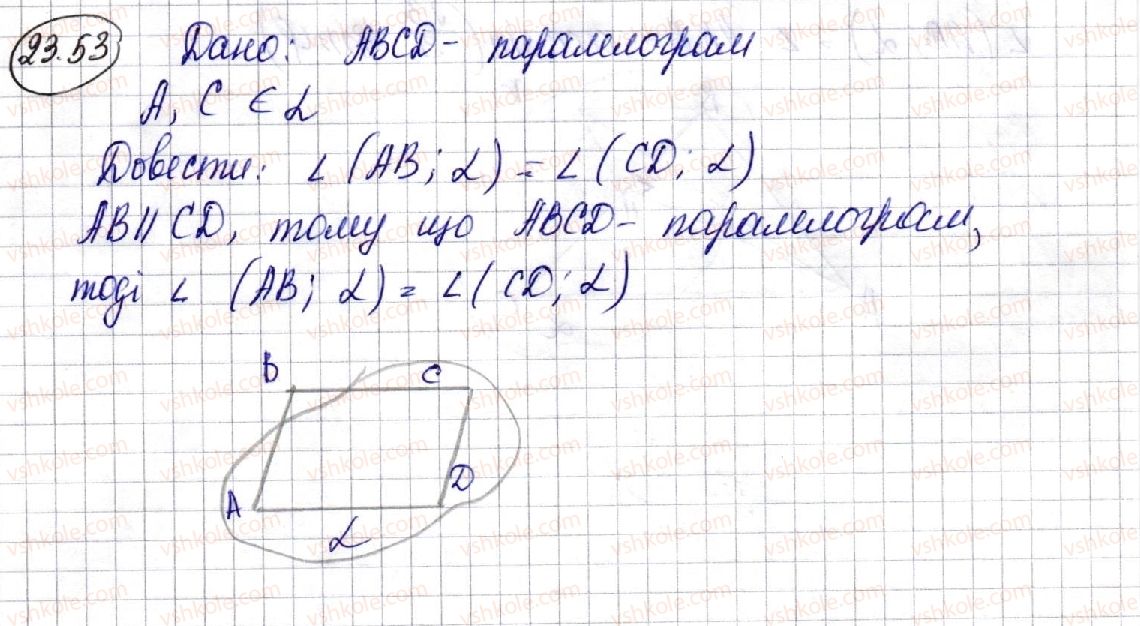 23.53 Дано: ABCD - паралелограм
A, C ∈ α
Довести: ∠ (AB; α) = ∠ (CD; α)
AB || CD, тому що ABCD - паралелограм,
тоді ∠ (AB; α) = ∠ (CD; α)
B C
A D
α